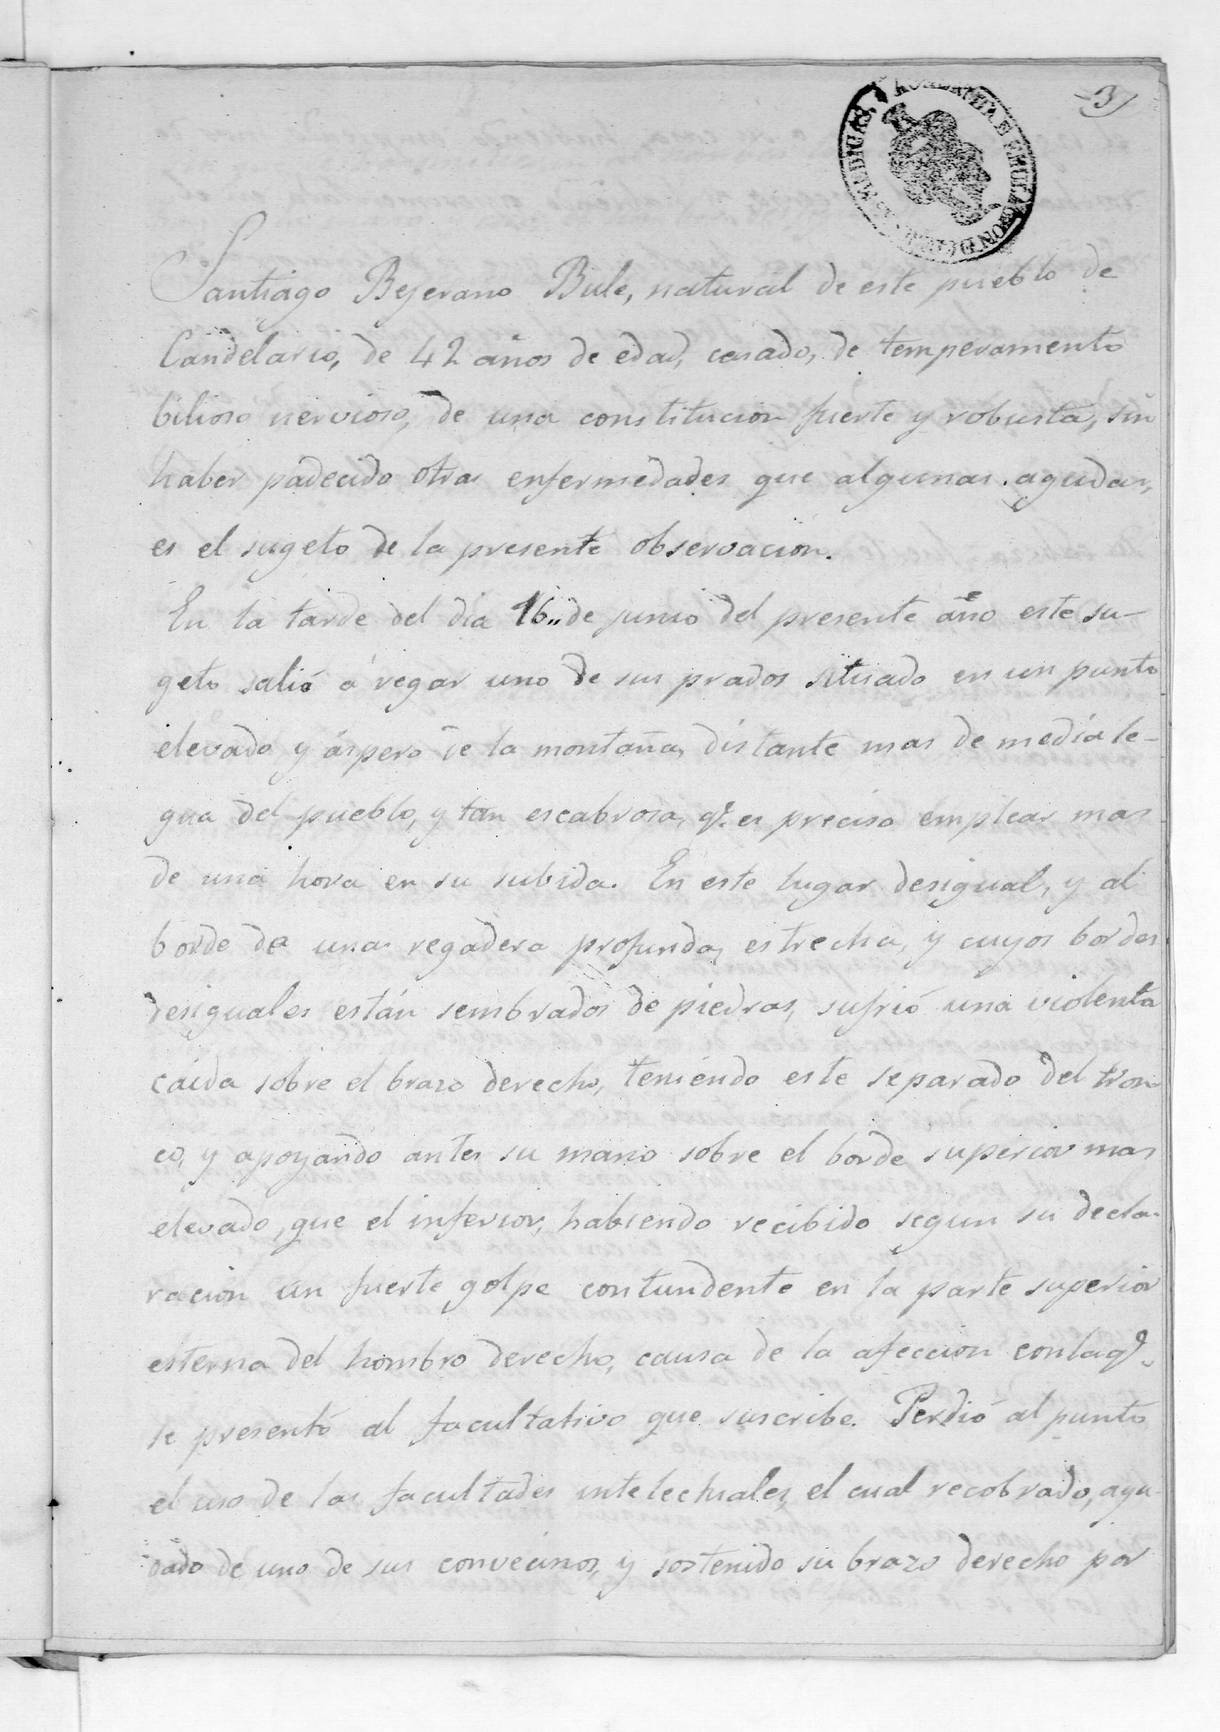 3
ACADEMIA DE EMULACION DE CIENCIAS MEDICAS
Santiago Bejerano Bule, natural de este pueblo de
Candelario, de 42 años de edad, casado, de temperamento
bilioso nervioso, de una constitucion fuerte y robusta, sin
haber padecido otras enfermedades que algunas agudas,
es el sugeto de la presente observacion.
En la tarde del dia 16,, de junio del presente año este su-
geto salió á regar uno de sus prados situado en un punto
elevado y áspero de la montaña, distante mas de media le-
gua del pueblo, y tan escabrosa, qe. es preciso emplear mas
de una hora en su subida. En este lugar desigual, y al
borde de una regadera profunda, estrecha, y cuyos bordes
desiguales están sembrados de piedras, sufrió una violenta
caida sobre el brazo derecho, teniendo este separado del tron
co, y apoyando antes su mano sobre el borde superior mas
elevado, que el inferior, habiendo recibido segun su decla-
racion un fuerte golpe contundente en la parte superior
esterna del hombro derecho, causa de la afeccion con la qe.
se presentó al facultativo que suscribe. Perdió al punto
el uso de las facultades intelectuales, el cual recobrado, ayu
dado de uno de sus convecinos, y sostenido su brazo derecho por